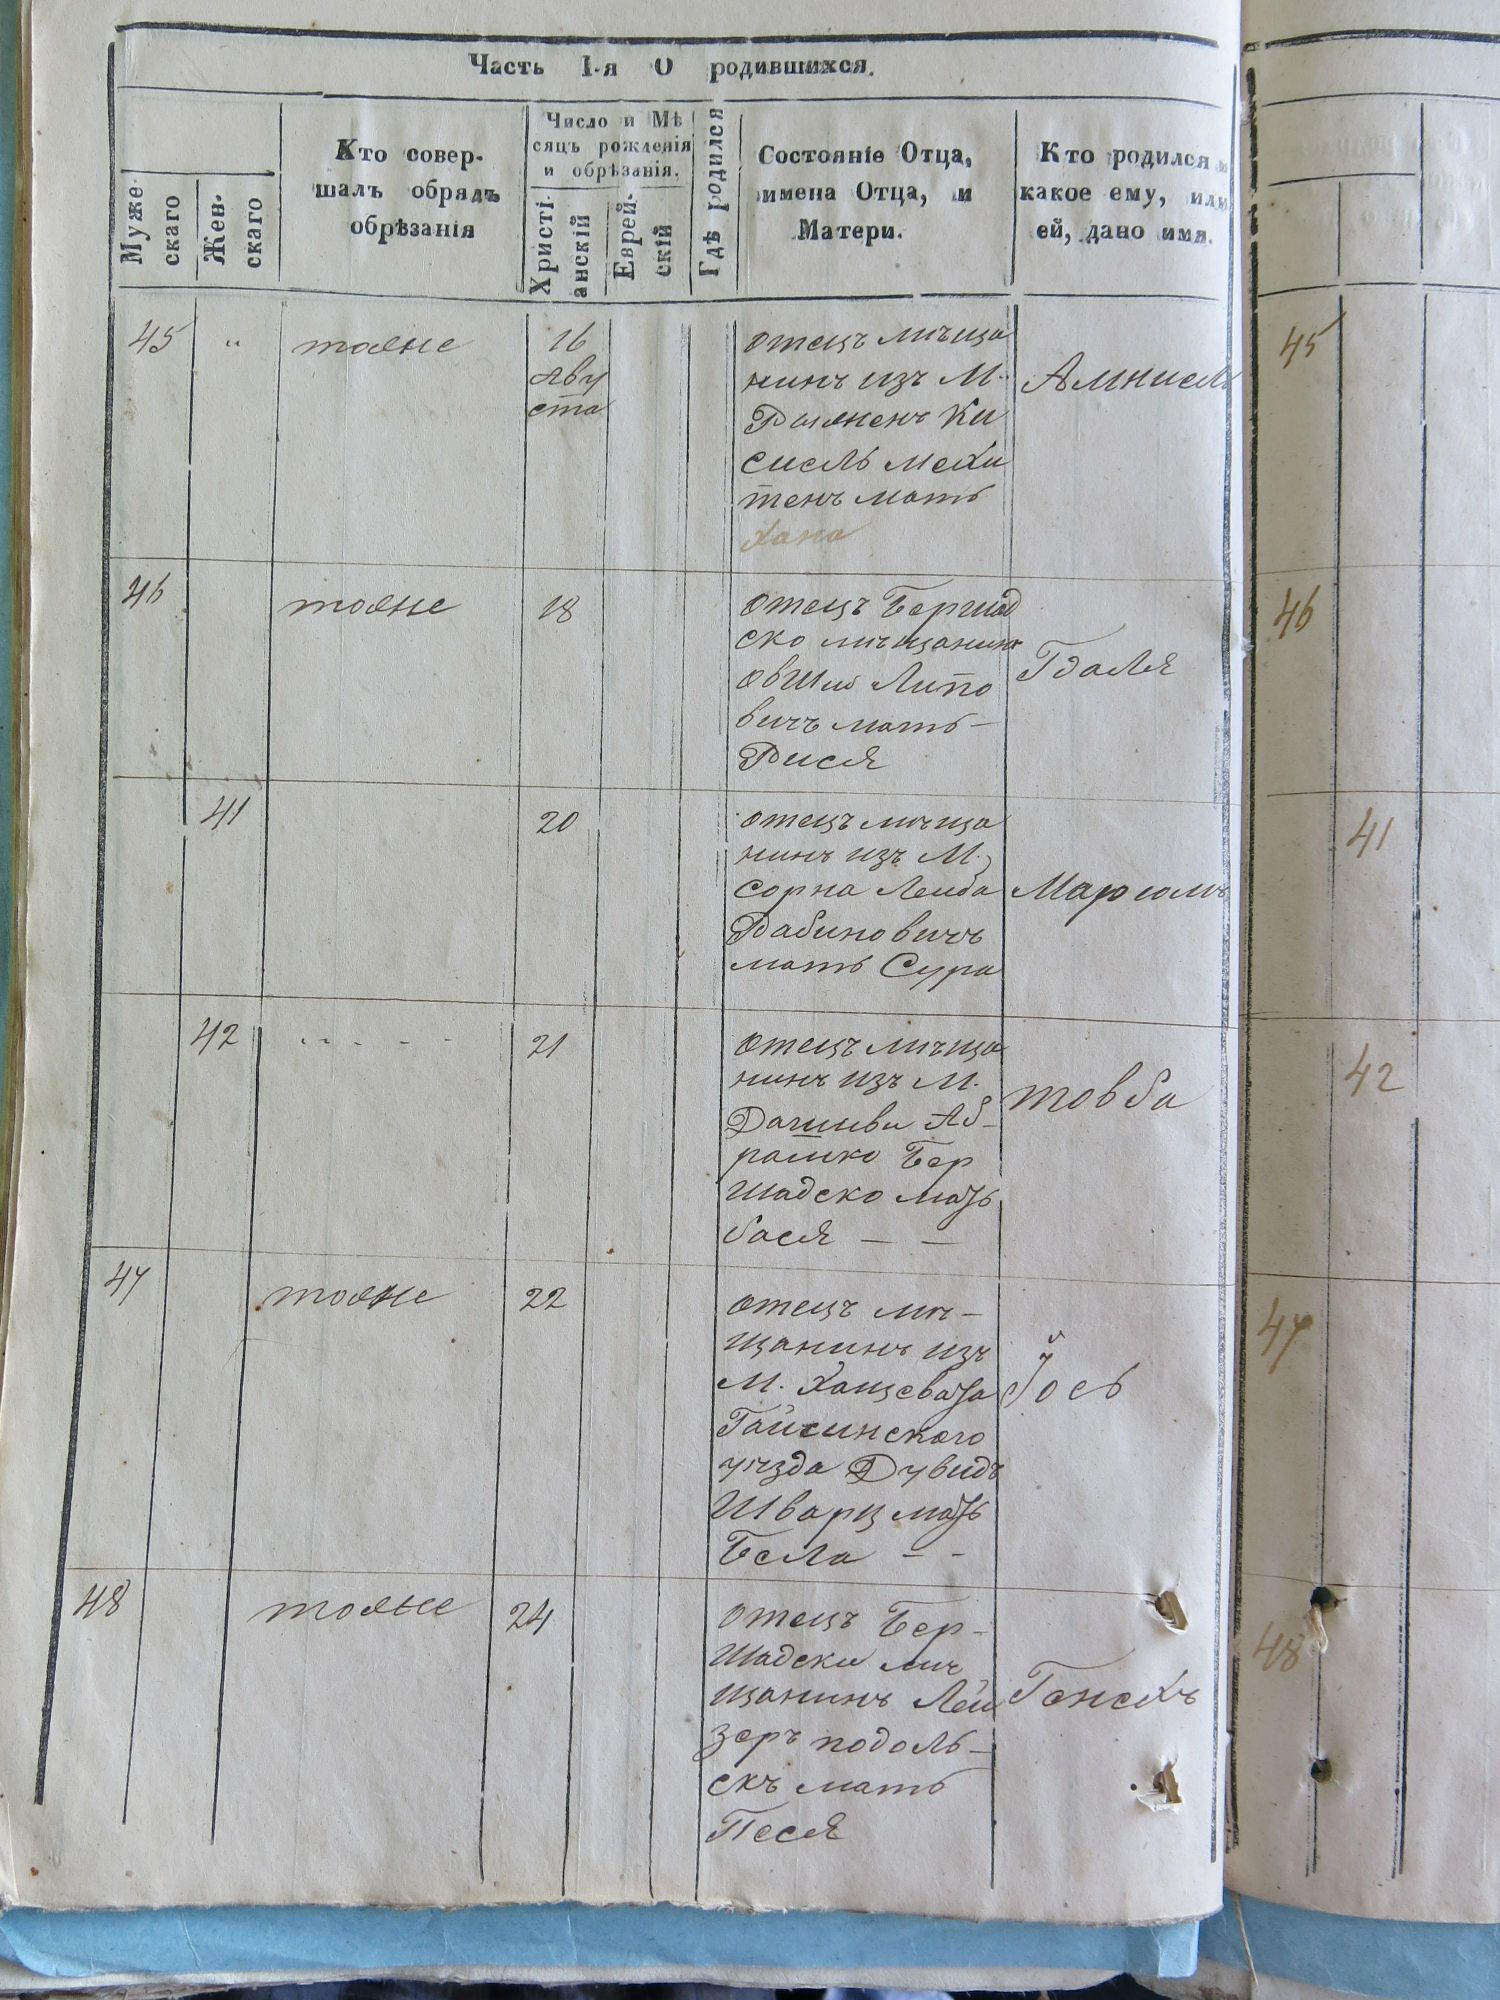 Часть I-я О родившихся.
Муже-
скаго
Жен-
скаго
Кто совер-
шалъ обрядъ
обрѣзанія
Число и Мѣ
сяцъ рожденія
и обрѣзанія.
Христі-
анскій
Еврей-
скій
Гдѣ родился
Состояніе Отца,
имена Отца, и
Матери.
Кто родился и
какое ему, или
ей, дано имя.
45 " тоже 16
Авгу
ста
отецъ мѣща
нинъ изъ М.
Ки
сель
мать
Хана
45
46 тоже 18
отецъ Бершад
ско мѣщанинъ
Овшия Липо
вичъ мать -
Рися
Гдаля
46
41 20
отецъ мѣща
нинъ изъ М.
Сорка Лейба
Рабиновичъ
мать Сура
Маргомъ
41
42 - - - - 21
отецъ мѣща
нинъ изъ М.
Дашиви Аб-
рашко Бер
шадско мать
бася - -
товба
42
47 тоже 22
отецъ мѣ-
щанинъ изъ
М. Хащевата
Гайсинского
уѣзда Дувидъ
Шварц мать
Бела - -
Йось
47
48 тоже 24
отецъ Бер-
шадски мѣ
щанинъ Леи
зеръ подоль-
скъ мать
Песя
Генехъ
48